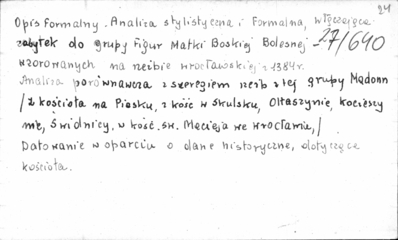 24
Opis formalny. Analiza stylistyczna i formalna, włączająca
zabytek do grupy figur Matki Boskiej Bolesnej
27/640
wzorowanych na rzeźbie wrocławskiej z 1384r.
Analiza porównawcza z szeregiem rzeźb z tej grupy Madonn
/z kościoła na Piasku, z kość w Skulsku, Ołtaszynie, Kocierzy
nie, Świdnicy, w kość. św. Macieja we Wrocławiu,/
Datowanie w oparciu o dane historyczne, dotyczące
kościoła.